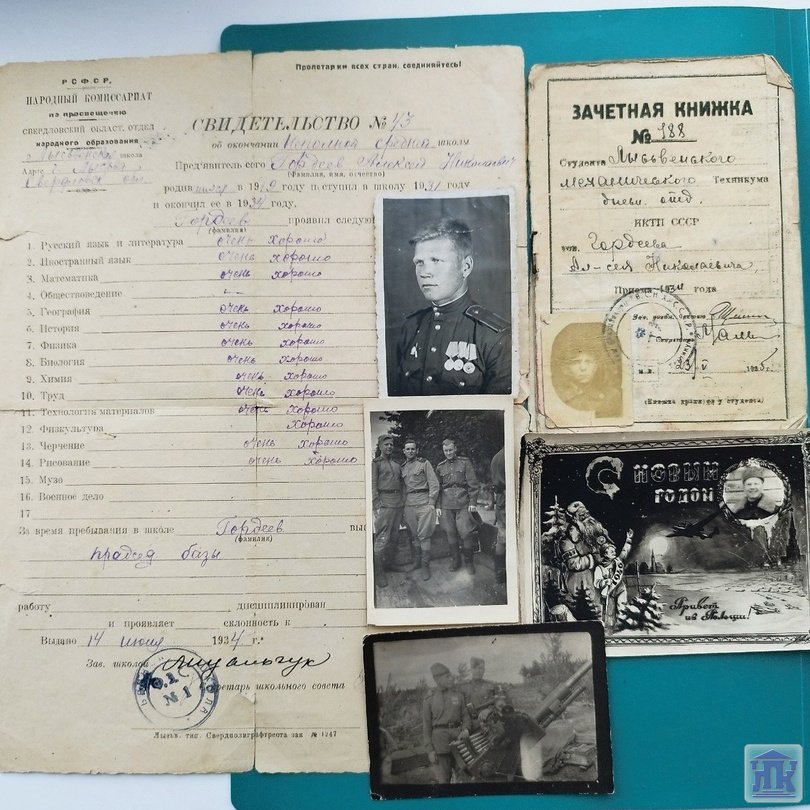 РСФСР.
НАРОДНЫЙ КОМИССАРИАТ
по просвещению
СВЕРДЛОВСКИЙ ОБЛАСТ. ОТДЕЛ
народного образования
школа
Адрес
Пролетарии всех стран, соединяйтесь!
СВИДЕТЕЛЬСТВО № 43
об окончании Неполной средней школы
Пред'явитель сего Гордеев Алексей Николаевич
(Фамилия, имя, отчество)
родив в 19 году поступил в школу 1931 году
и окончил ее в 1934 году.
Гордеев проявил следую
(фамилия)
1. Русский язык и литература очень хорошо
2. Иностранный язык очень хорошо
3. Математика очень хорошо
4. Обществоведение
5. География очень хорошо
6. История очень хорошо
7. Физика очень хорошо
8. Биология очень хорошо
9. Химия очень хорошо
10. Труд очень хорошо
11. Технология материалов очень хорошо
12. Физкультура хорошо
13. Черчение очень хорошо
14. Рисование очень хорошо
15. Музо
16. Военное дело
17
За время пребывания в школе Гордеев вы
(фамилия)
базы
работу дисциплинирован
и проявляет склонность к
Выдано 14 июня 1934 г.
Зав. школой
секретарь школьного совета
№ 1
Лысьв. тип. Свердполиграфтреста зак № 1247
ЗАЧЕТНАЯ КНИЖКА
№ 188
Студента Лысьвенского
механического Техникума
дневн. отд.
НКТП СССР
Гордеева
Ал-сея Николаевича
Приема 1934 года
(Книжка хранится у студента)
С НОВЫМ
ГОДОМ
Привет
из Польши!
ПК